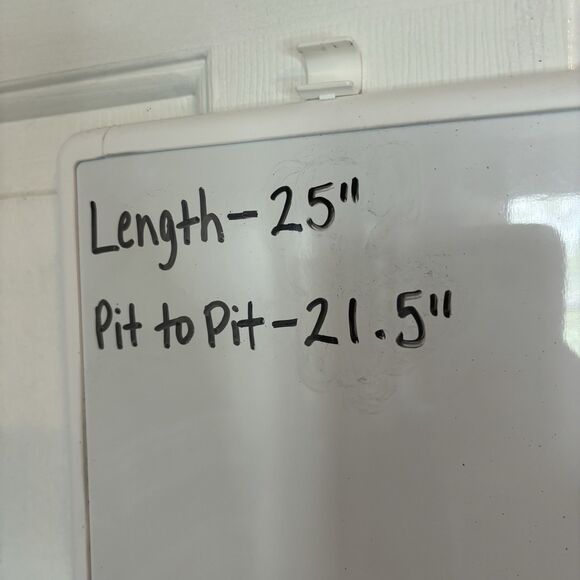 Length-25"
Pit to Pit-21.5"